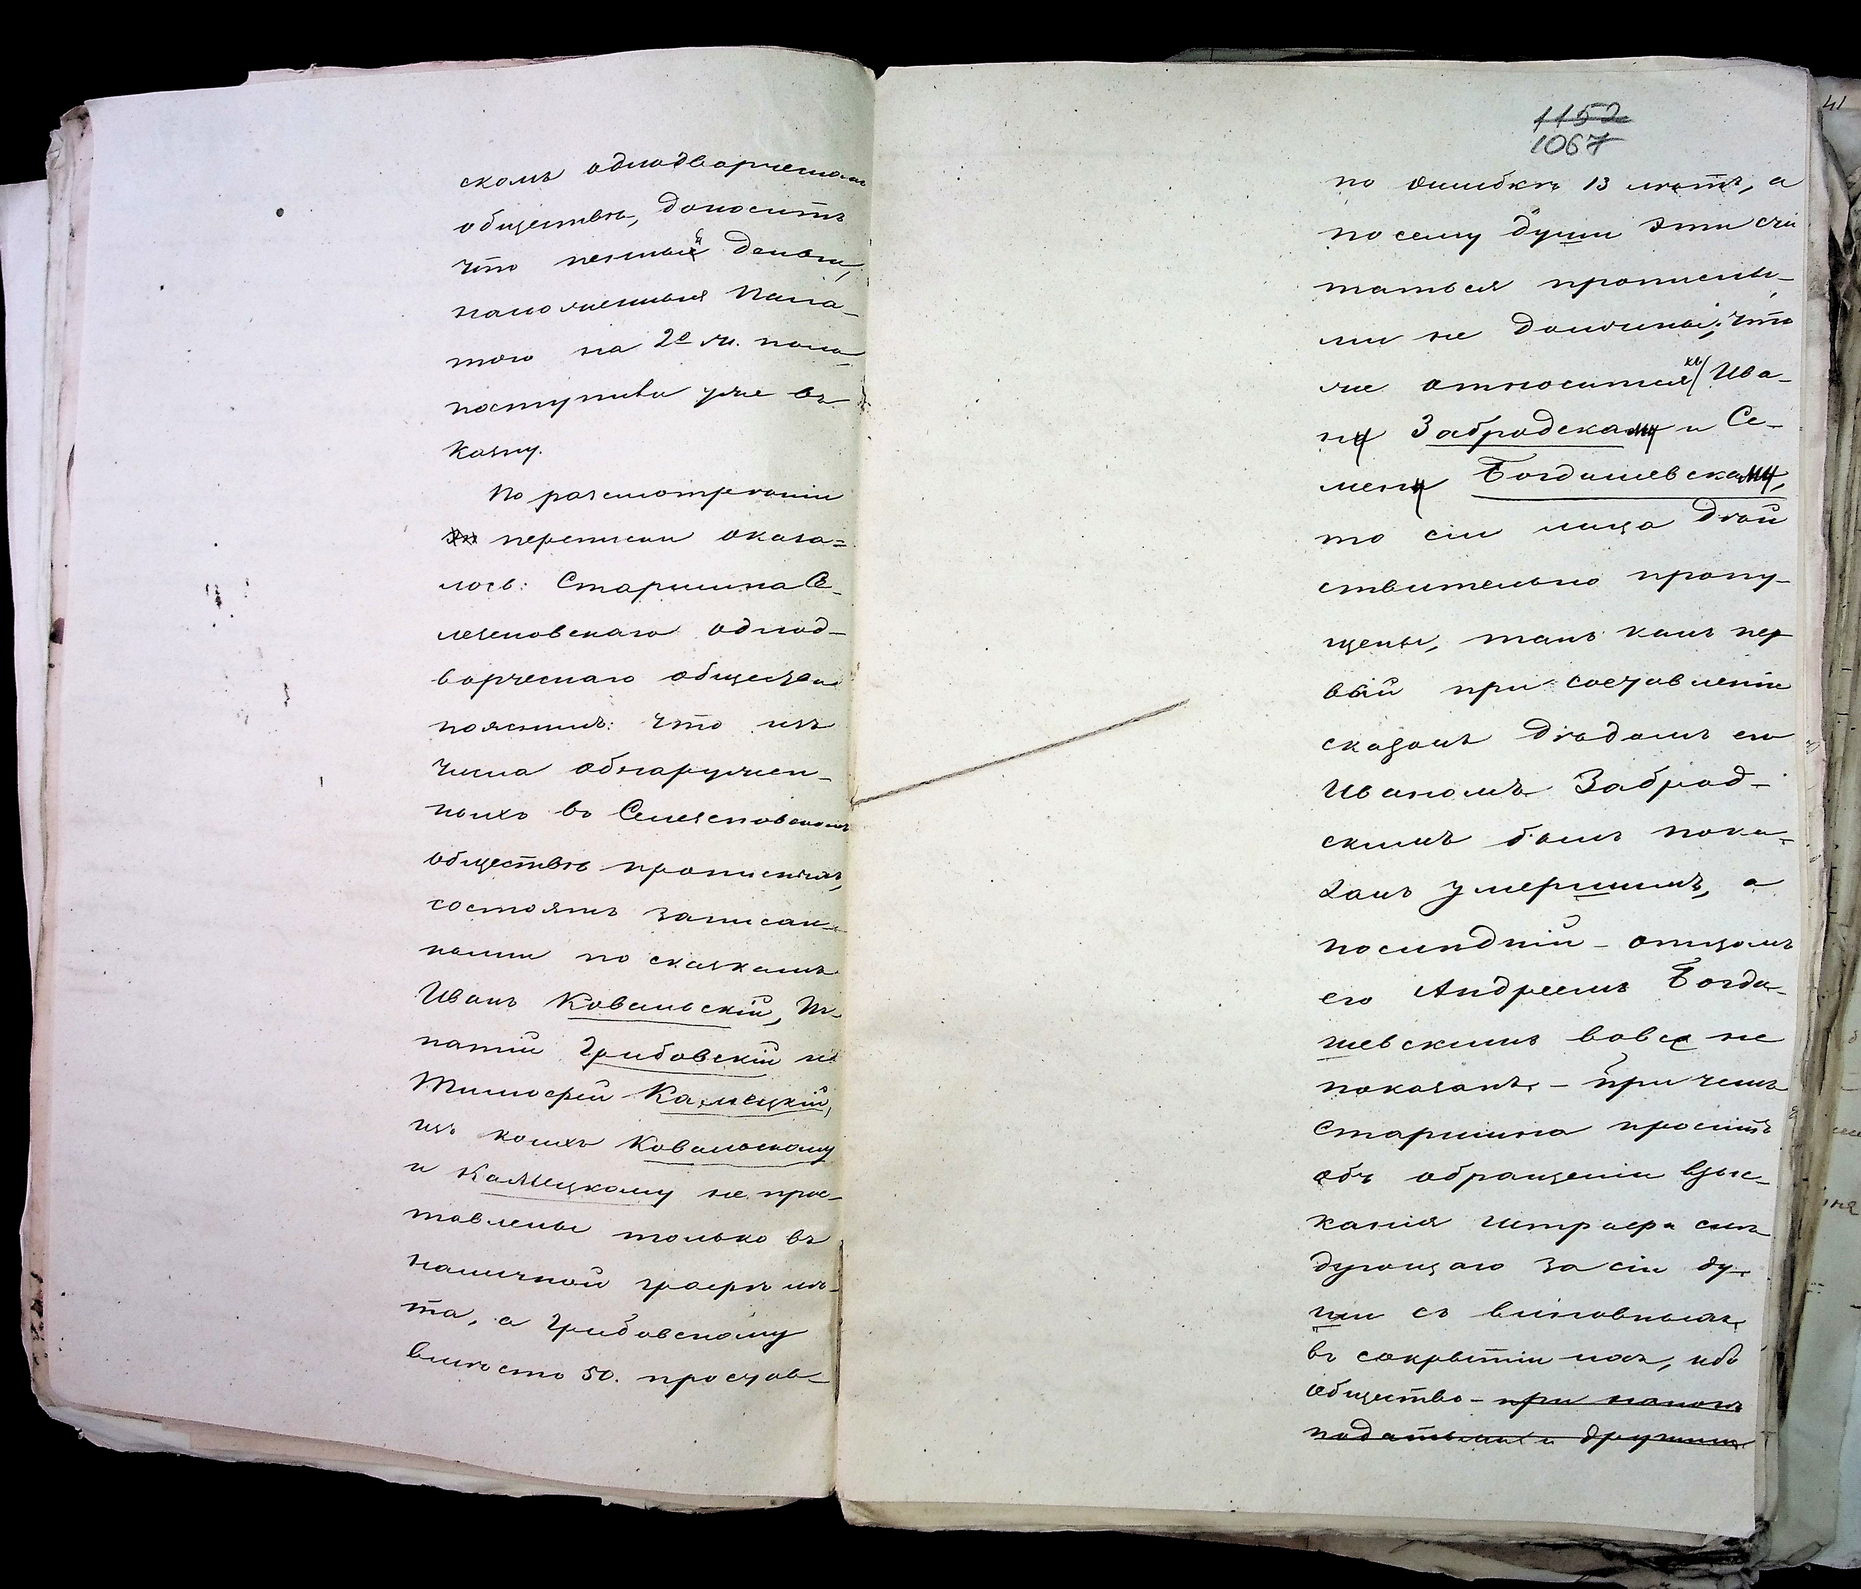 скомъ однодворческомъ
обществѣ, доноситъ
что пенныя деньги,
наложенныя Пала-
тою на 2е м. пола
поступили уже въ
казну.
По разсмотреніи
переписки оказа=
лось: Старшина Се-
лезеновскаго однод-
ворческаго общества
пояснилъ: что изъ
числа обнаружен-
ныхъ въ Селезеновскомъ
обществѣ прописныхъ,
состоятъ записан-
ными по сказкамъ
Иванъ Ковальскій, Иг-
натій Грибовскій и
Тимофей Камецкій,
изъ коихъ Ковальскому
и Камецкому не прос-
тавлены только въ
наличной графѣ лѣ-
та, а Грибовскому
вмѣсто 50. простав-
1152
1067
по ошибкѣ 13 лѣтъ, а
посему души эти счи
таться прописны-
ми не должны; что
же относится къ Ива-
ну Забродскому и Се-
мену Богдашевскому,
то сіи лица дѣй
ствительно пропу-
щены, такъ какъ пер
вый при составленіи
сказокъ дѣдомъ его
Иваномъ Заброд-
скимъ былъ пока-
занъ умершимъ, а
послѣдній - отцомъ
его Андреемъ Богда-
шевскимъ вовсе не
показанъ, - при чемъ
старшина проситъ
объ обращеніи взыс-
канія штрафа слѣ
дующаго за сіи ду-
ши съ виновныхъ
въ сокрытіи ихъ, ибо
общество - при
податьми и другими
41